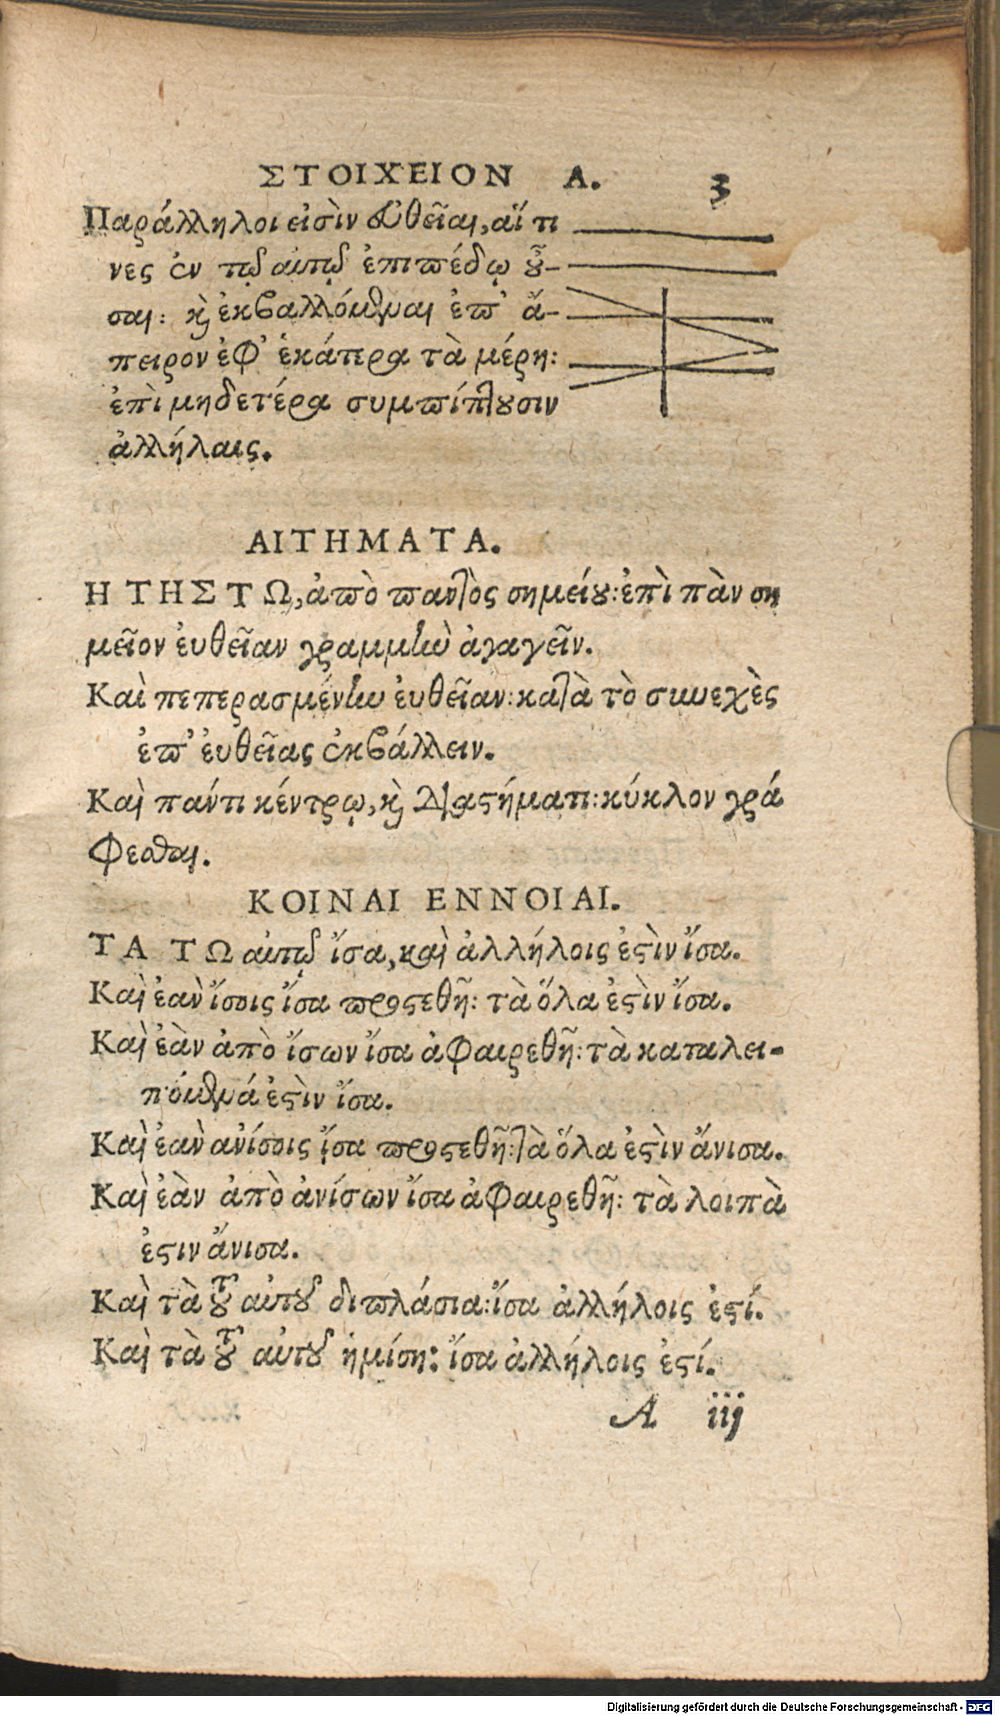 ΣΤΟΙΧΕΙΟΝ Α. 3
Παράλληλοι εἰσὶν εὐθεῖαι, αἵ τι
νες ἐν τῷ αὐτῷ ἐπιπέδῳ οὖ-
σαι: καὶ ἐκβαλλόμεναι ἐπ' ἄ-
πειρον ἐφ' ἑκάτερα τὰ μέρη:
ἐπὶ μηδετέρα συμπίπτουσιν
ἀλλήλαις.
ΑΙΤΗΜΑΤΑ.
Η ΤΗΣΤΩ, ἀπὸ παντὸς σημείου: ἐπὶ πὰν ση
μεῖον ἐυθεῖαν γραμμὴν ἀγαγεῖν.
Καὶ πεπερασμένην ἐυθεῖαν: κατὰ τὸ συνεχὲς
ἐπ' ἐυθείας ἐκβάλλειν.
Καὶ παντὶ κέντρῳ, καὶ διαστήματι: κύκλον γρά
φεσθαι.
ΚΟΙΝΑΙ ΕΝΝΟΙΑΙ.
ΤΑ ΤΩ αὐτῷ ἴσα, καὶ ἀλλήλοις ἐστὶν ἴσα.
Καὶ ἐὰν ἴσοις ἴσα προστεθῆ: τὰ ὅλα ἐστὶν ἴσα.
Καὶ ἐὰν ἀπὸ ἴσων ἴσα ἀφαιρεθῆ: τὰ καταλει-
πόμενά ἐστὶν ἴσα.
Καὶ ἐὰν ἀνίσοις ἴσα προστεθῆ: τὰ ὅλα ἐστὶν ἄνισα.
Καὶ ἐὰν ἀπὸ ἀνίσων ἴσα ἀφαιρεθῆ: τὰ λοιπὰ
ἐστιν ἄνισα.
Καὶ τὰ τοῦ αὐτοῦ διπλάσια: ἴσα ἀλλήλοις ἐστί.
Καὶ τὰ τοῦ αὐτοῦ ἡμίση: ἴσα ἀλλήλοις ἐστί.
A iij
Digitalisierung gefördert durch die Deutsche Forschungsgemeinschaft - DFG